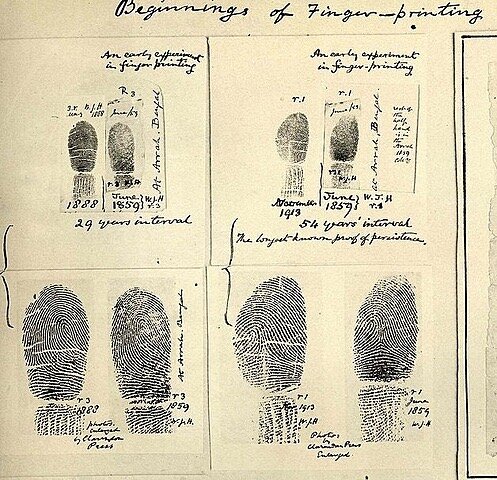 Beginnings of Finger-printing
An early experiment
in finger printing
R 3
W.J.H
1888
June/59
At Arrah. Bengal
r 3 W.J.H
1888
June
1859
W.J.H
r 3
29 years interval
An early experiment
in finger-printing
r.1
r.1
June/59
rest of
the
hand
is in
the
Arrah
1859
At Arrah. Bengal
W.J.H
November
1913
June
1859
W.J.H
r.1
54 years' interval
The longest known proof of persistence.
At Arrah. Bengal
r 3
1888
r 3
1859
W.J.H.
photos
enlarged
by Clarendon
Press
r 1
1913
W.J.H
Photos
by
Clarendon Press
Enlarged
r 1
June
1859
W.J.H.